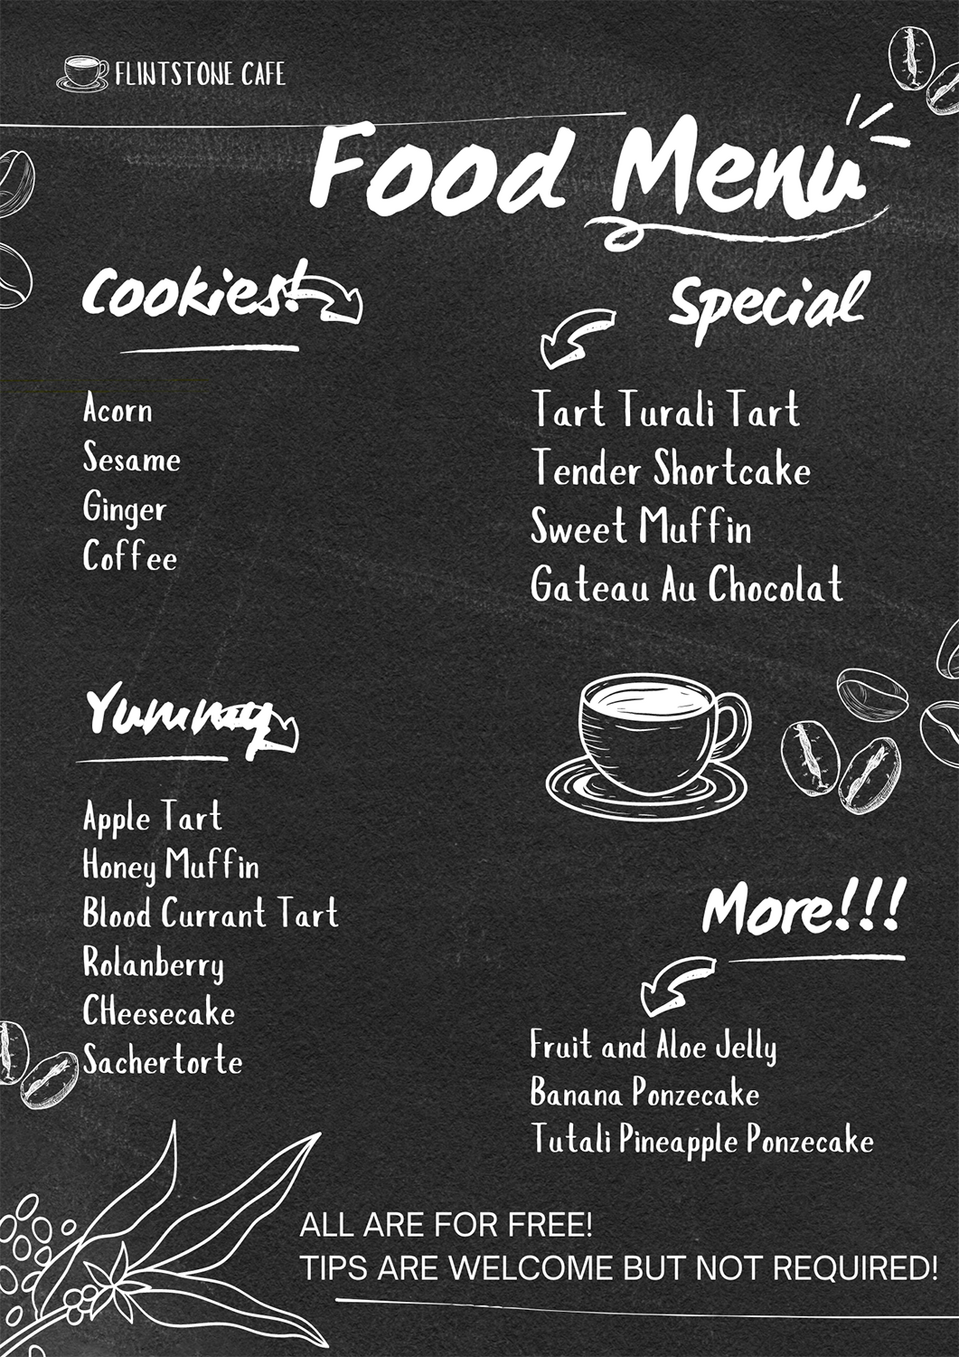 FLINTSTONE CAFE
Food Menu
Cookies!
Acorn
Sesame
Ginger
Coffee
Special
Tart Turali Tart
Tender Shortcake
Sweet Muffin
Gateau Au Chocolat
Yummy
Apple Tart
Honey Muffin
Blood Currant Tart
Rolanberry
CHeesecake
Sachertorte
More!!!
Fruit and Aloe Jelly
Banana Ponzecake
Tutali Pineapple Ponzecake
ALL ARE FOR FREE!
TIPS ARE WELCOME BUT NOT REQUIRED!